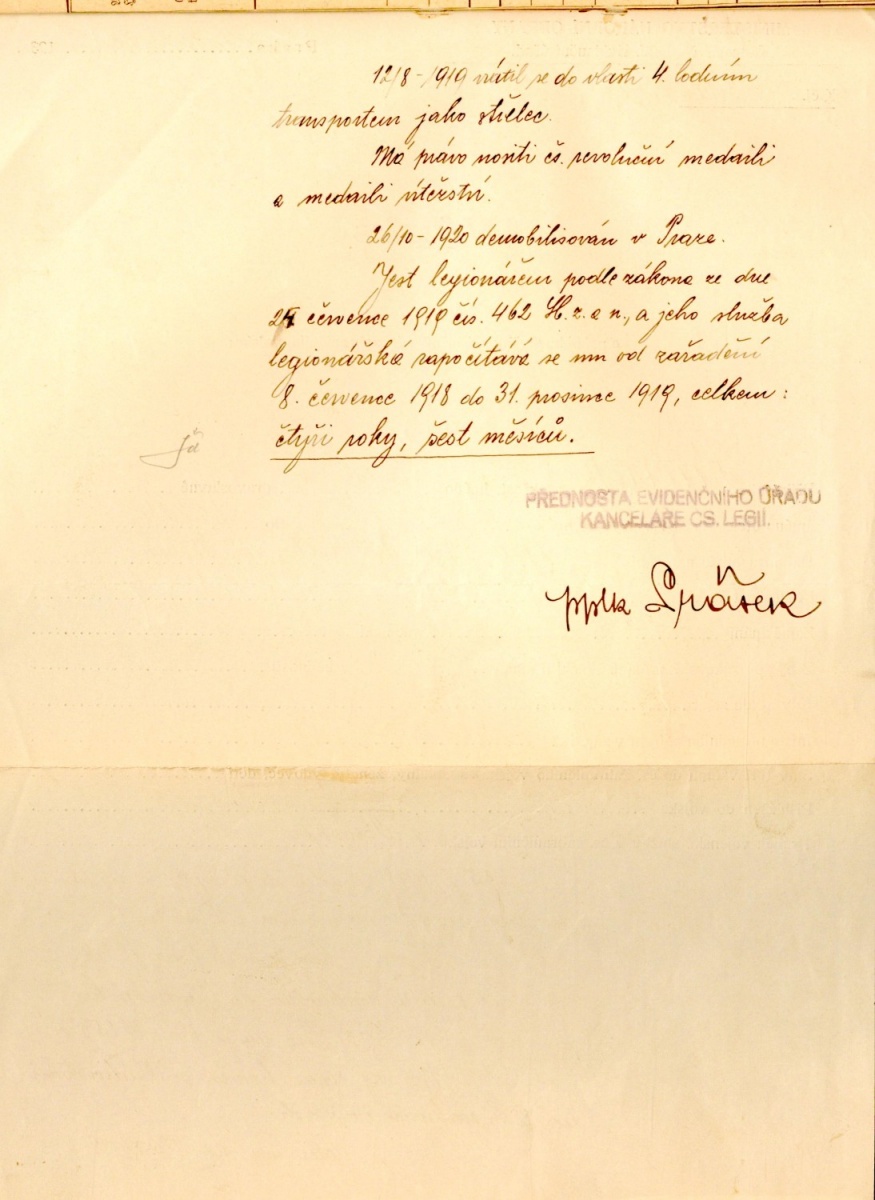 12/8 - 1919 vrátil se do vlasti 4. lodním
transportem jako střelec.
Má právo nositi čs. revoluční medaili
a medaili vítězství.
26/10 - 1920 demobilisován v Praze.
Jest legionářem podle zákona ze dne
24 července 1919 čís. 462 Sb. z. a n., a jeho služba
legionářská započítává se mu od zařadění
8. července 1918 do 31. prosince 1919, celkem:
čtyři roky, šest měsíců.
PŘEDNOSTA EVIDENČNÍHO ÚŘADU
KANCELÁŘE ČS. LEGIÍ.
pplk